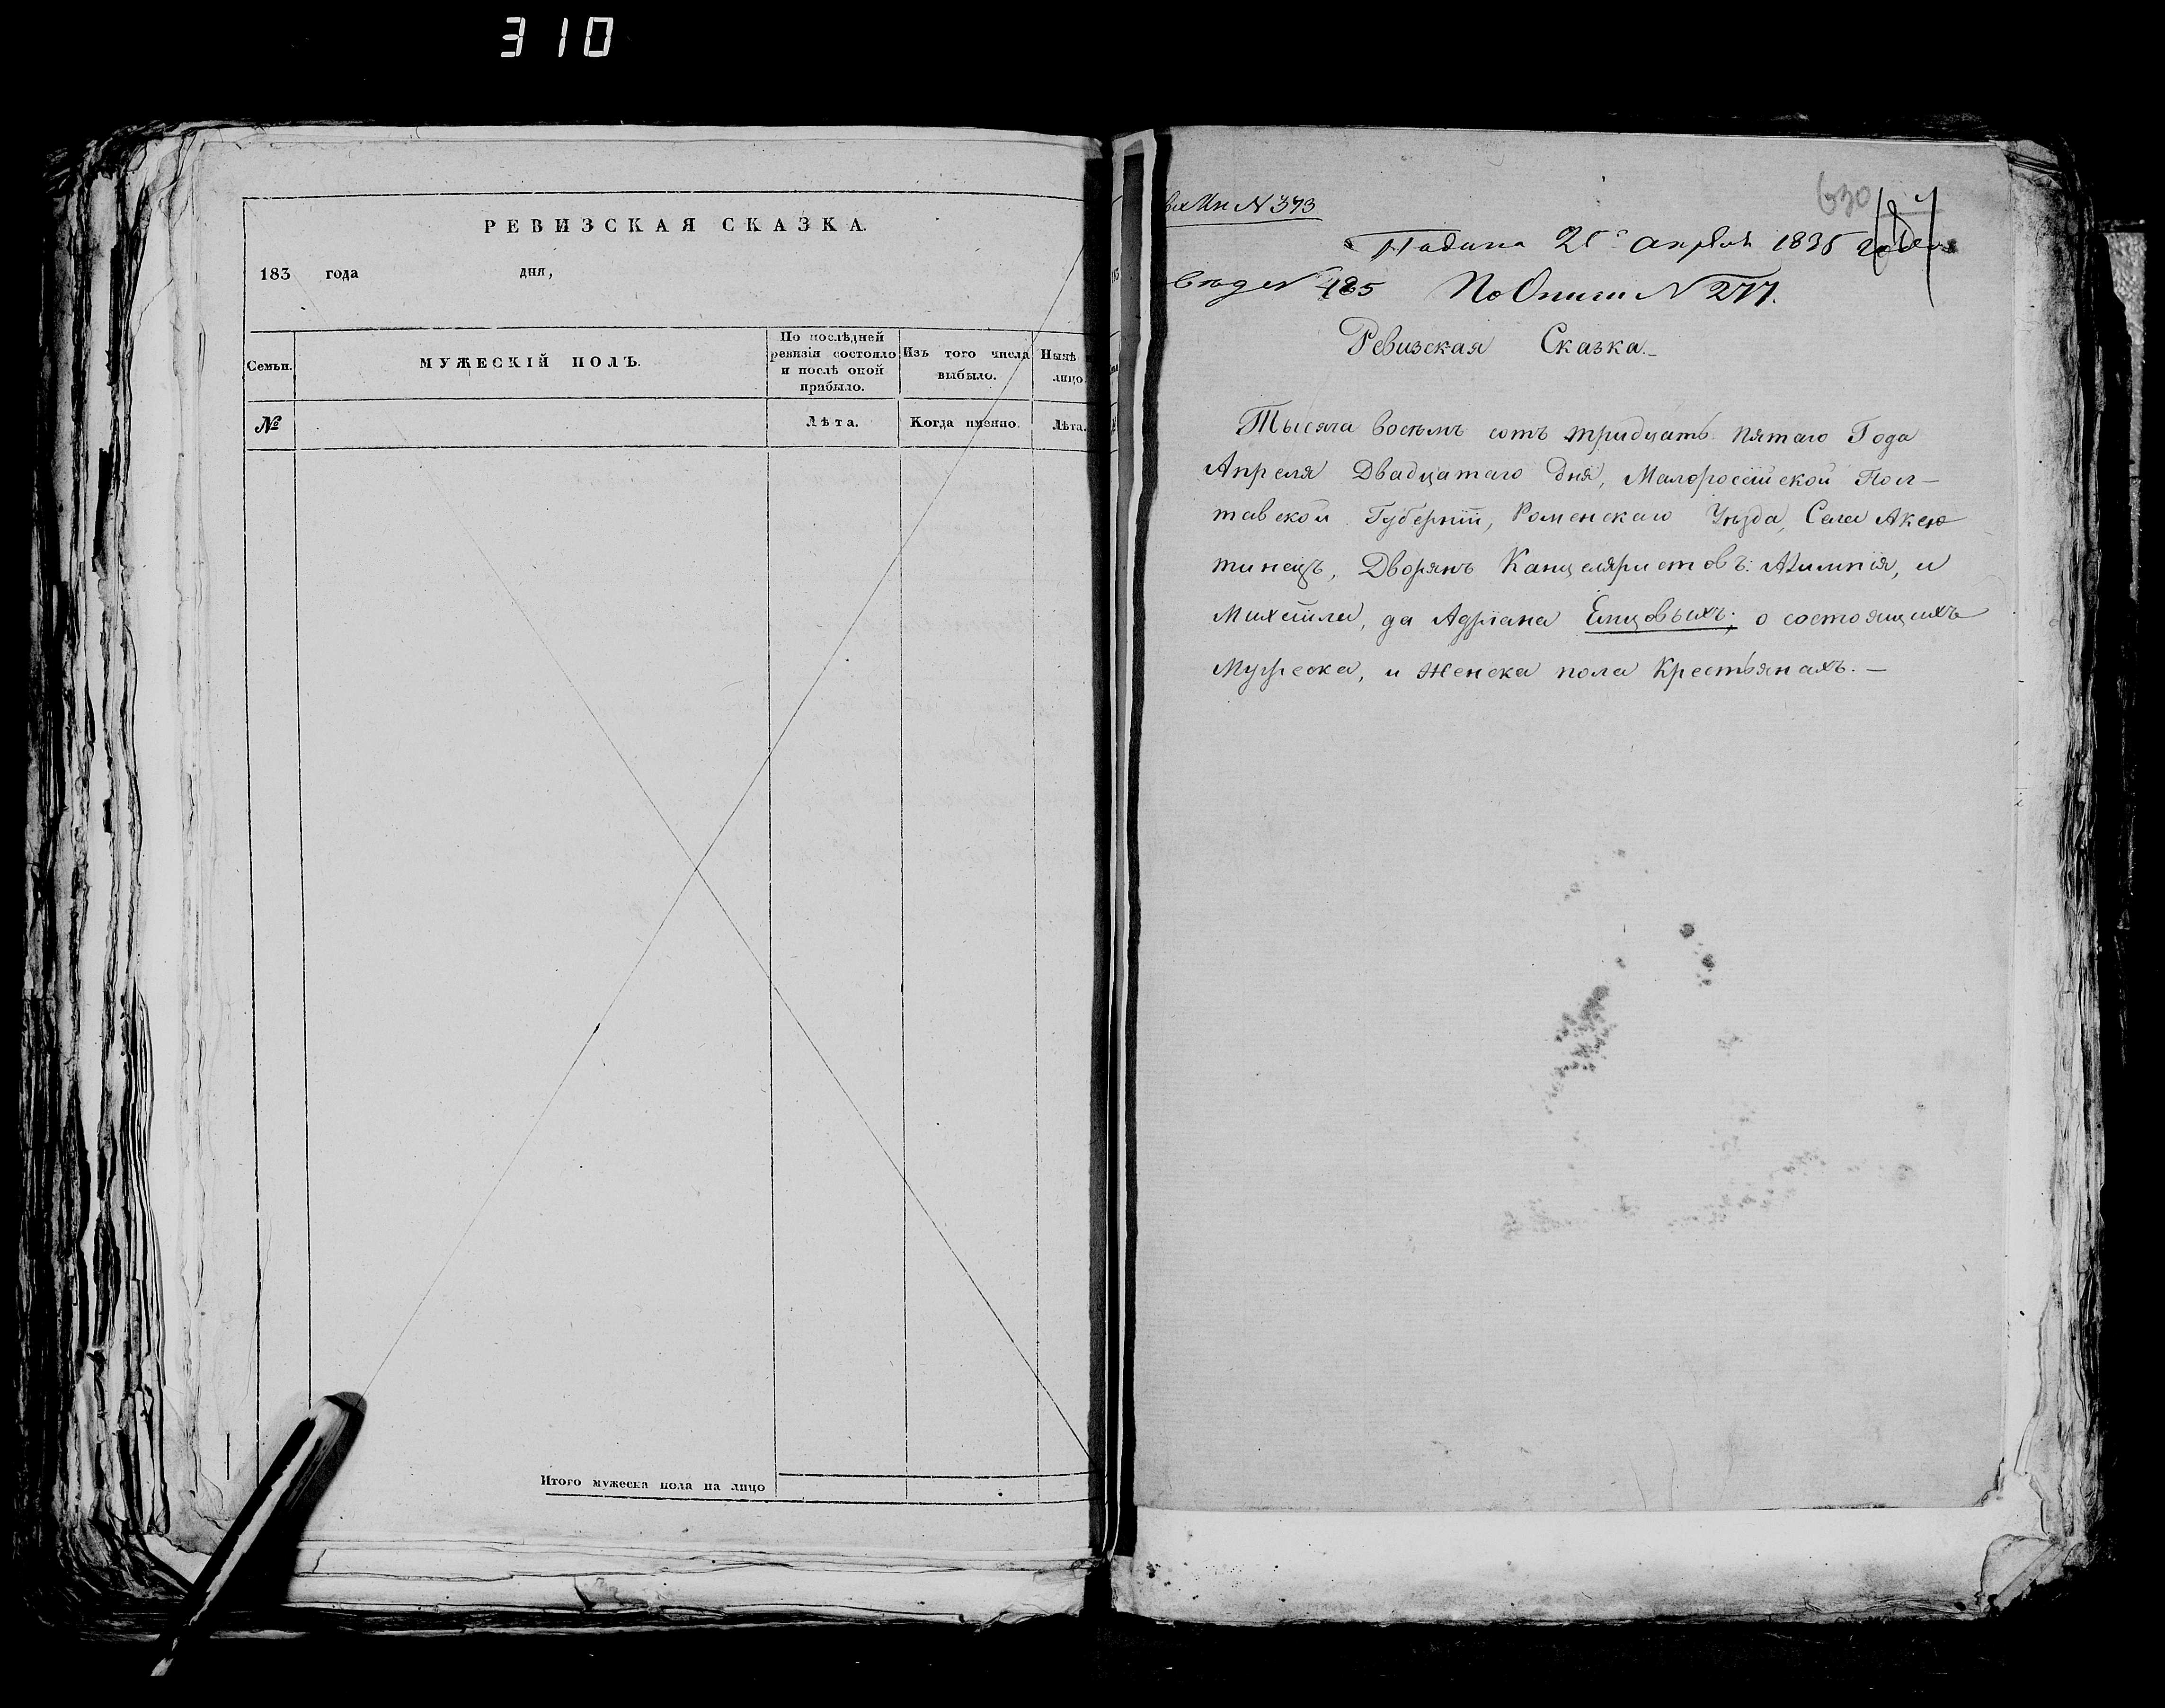 310
РЕВИЗСКАЯ СКАЗКА.
183 года дня,
Семьи.
МУЖЕСКІЙ ПОЛЪ.
По послѣдней
ревизіи состояло
и послѣ оной
прибыло.
Изъ того числа
выбыло.
Нынѣ
лицо
№
Лѣта.
Когда именно.
Лѣта.
Итого мужеска пола на лицо
N 373
630
Подана 25 апреля 1835 года
485 По Описи N 277.
Ревизская Сказка.
Тысяча восемь сотъ тридцать пятаго Года
Апреля Двадцатаго дня, Малороссійской Пол-
тавской Губерніи, Роменскаго Уѣзда, Села Аксю
тинецъ, Дворянъ Канцеляристовъ: Алимпія, и
Михаила, да Адріана Емцовыхъ; о состоящихъ
Мужеска, и Женска пола Крестьянахъ. —